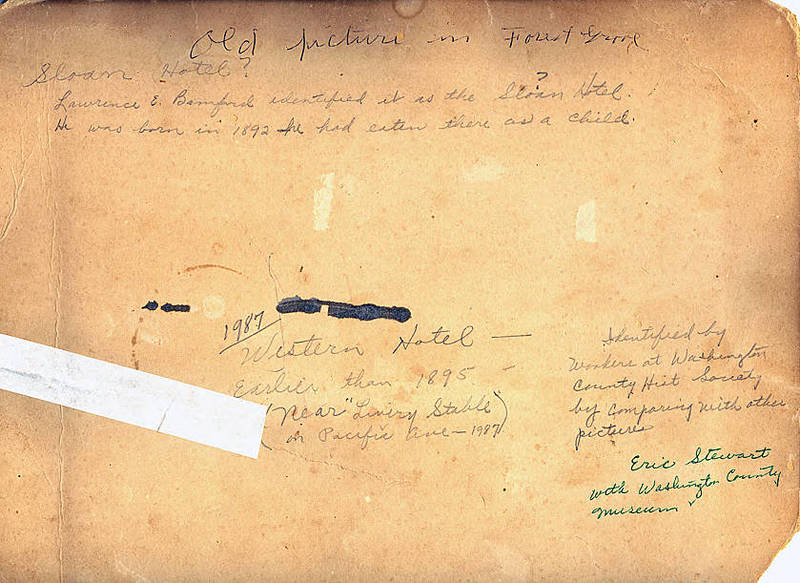 Old picture in Forest Grove
Sloan Hotel?
?
Lawrence E. Bamford identified it as the Sloan Hotel.
He was born in 1892 he had eaten there as a child.
1987
Western Hotel —
Earlier than 1895 -
(Near "Livery Stable")
on Pacific Ave - 1987
Identified by
Workers at Washington
County Hist Society
by comparing with other
pictures
Eric Stewart
with Washington County
Museum